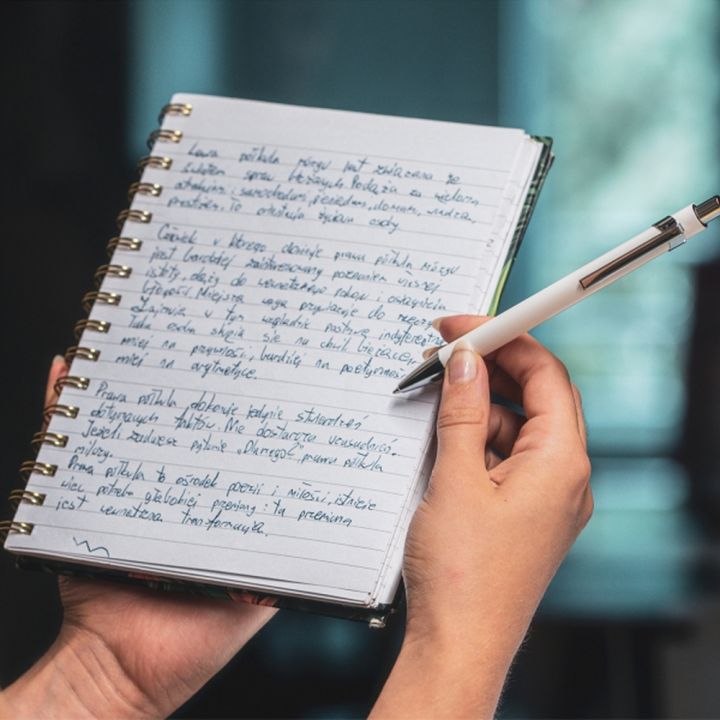 Lewa półkula mózgu jest związana ze
światem spraw bieżących. Podąża za
i samochodami, pieniędzmi, domami, władzą,
To orientuje życiem osoby
Człowiek u którego dominuje prawa półkula mózgu
jest bardziej zainteresowany poznaniem własnej
istoty, dąży do wewnętrznego pokoju i osiągnięcia
błogości. Mniejszą uwagę przywiązuje do rzeczy
Zajmuje w tym względzie postawę indyferentną
Taka osoba skupia się na chwili bieżącej
mniej na przyszłości, bardziej na poetyczności
mniej na arytmetyce.
Prawa półkula dokonuje jedynie stwierdzeń
dotyczących faktów. Nie dostarcza uzasadnień.
Jeżeli zadajesz pytanie „Dlaczego", prawa półkula
milczy.
Prawa półkula to ośrodek poezji i miłości, istnieje
więc potrzeba głębokiej przemiany; ta przemiana
jest wewnętrzną transformacją.